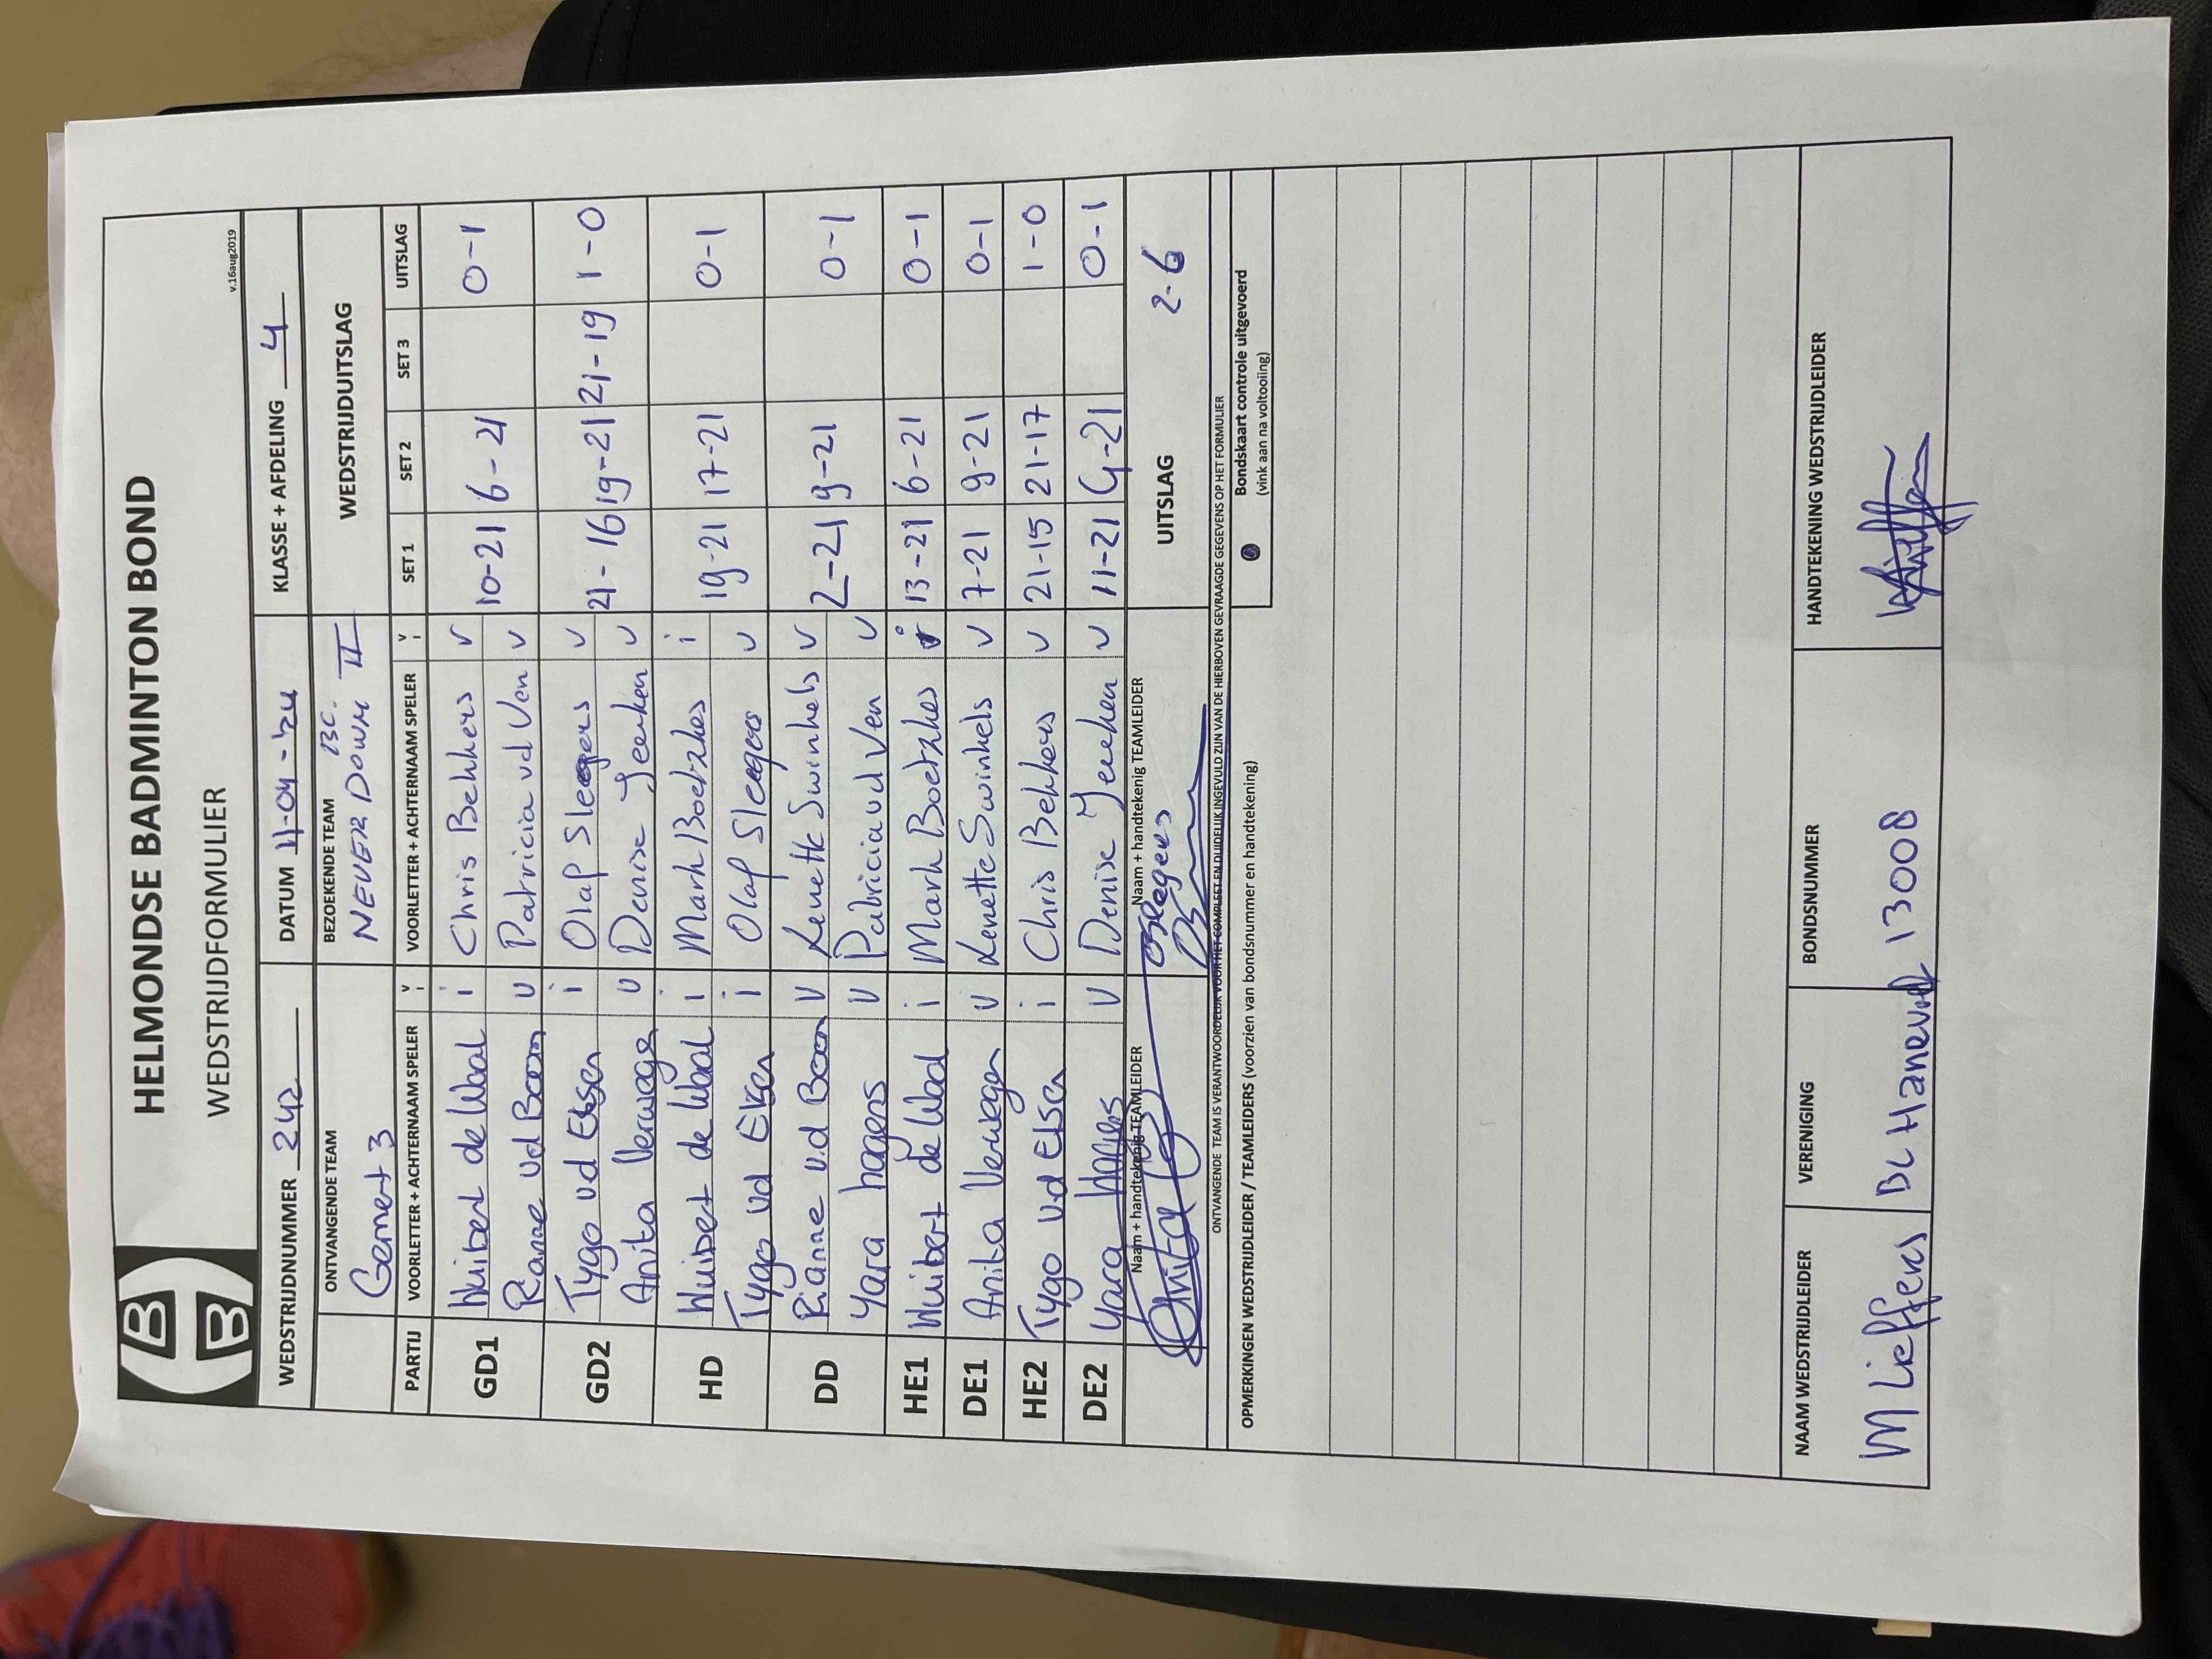 HELMONDSE BADMINTON BOND
WEDSTRIJDFORMULIER
v.16aug2019
WEDSTRIJDNUMMER 242 DATUM 11-04-'24 KLASSE + AFDELING 4
ONTVANGENDE TEAM BEZOEKENDE TEAM WEDSTRIJDUITSLAG
Gemert 3 BC. NEVER DOWN II
PARTIJ VOORLETTER + ACHTERNAAM SPELER V i VOORLETTER + ACHTERNAAM SPELER V i SET 1 SET 2 SET 3 UITSLAG
GD1 Wuibert de Waal i Chris Bekkers v 10-21 6-21 0-1
Rianne vd Boom v Patricia vd Ven v
GD2 Tygo vd Elsen i Olaf Sleegers v 21-16 19-21 21-19 1-0
Anita Verwegen v Denise Jeuken v
HD Wuibert de Waal i Mark Boetzkes i 19-21 17-21 0-1
Tygo vd Elsen i Olaf Sleegers v
DD Rianne v.d Boom v Lenette Swinkels v 2-21 9-21 0-1
Yara hagens v Patricia vd Ven v
HE1 Wuibert de Waal i Mark Boetzkes i 13-21 6-21 0-1
DE1 Anita Verwegen v Lenette Swinkels v 7-21 9-21 0-1
HE2 Tygo v.d Elsen i Chris Bekkers v 21-15 21-17 1-0
DE2 Yara hagens v Denise Jeuken v 11-21 9-21 0-1
Naam + handtekenig TEAMLEIDER Naam + handtekenig TEAMLEIDER UITSLAG 2-6
Anita OSleegers
ONTVANGENDE TEAM IS VERANTWOORDELIJK VOOR HET COMPLEET EN DUIDELIJK INGEVULD ZIJN VAN DE HIERBOVEN GEVRAAGDE GEGEVENS OP HET FORMULIER
OPMERKINGEN WEDSTRIJDLEIDER / TEAMLEIDERS (voorzien van bondsnummer en handtekening)
Bondskaart controle uitgevoerd
(vink aan na voltooiing)
NAAM WEDSTRIJDLEIDER VERENIGING BONDSNUMMER HANDTEKENING WEDSTRIJDLEIDER
M Lieffers BC Hanevelt 13008